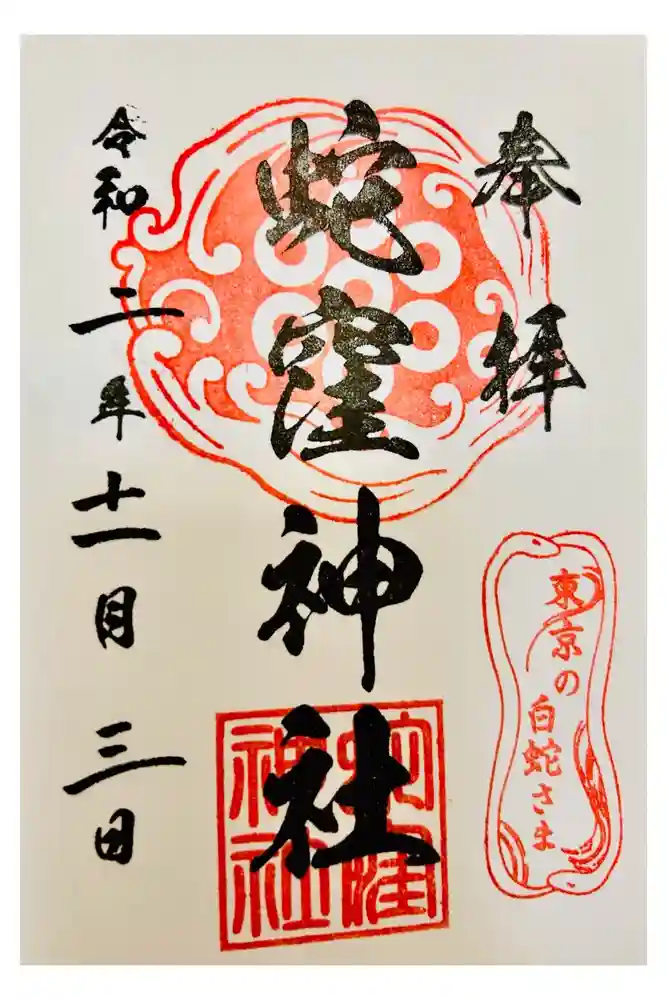 奉拝
東京の
白蛇さま
蛇窪神社
蛇窪
神社
令和二年十一月三日